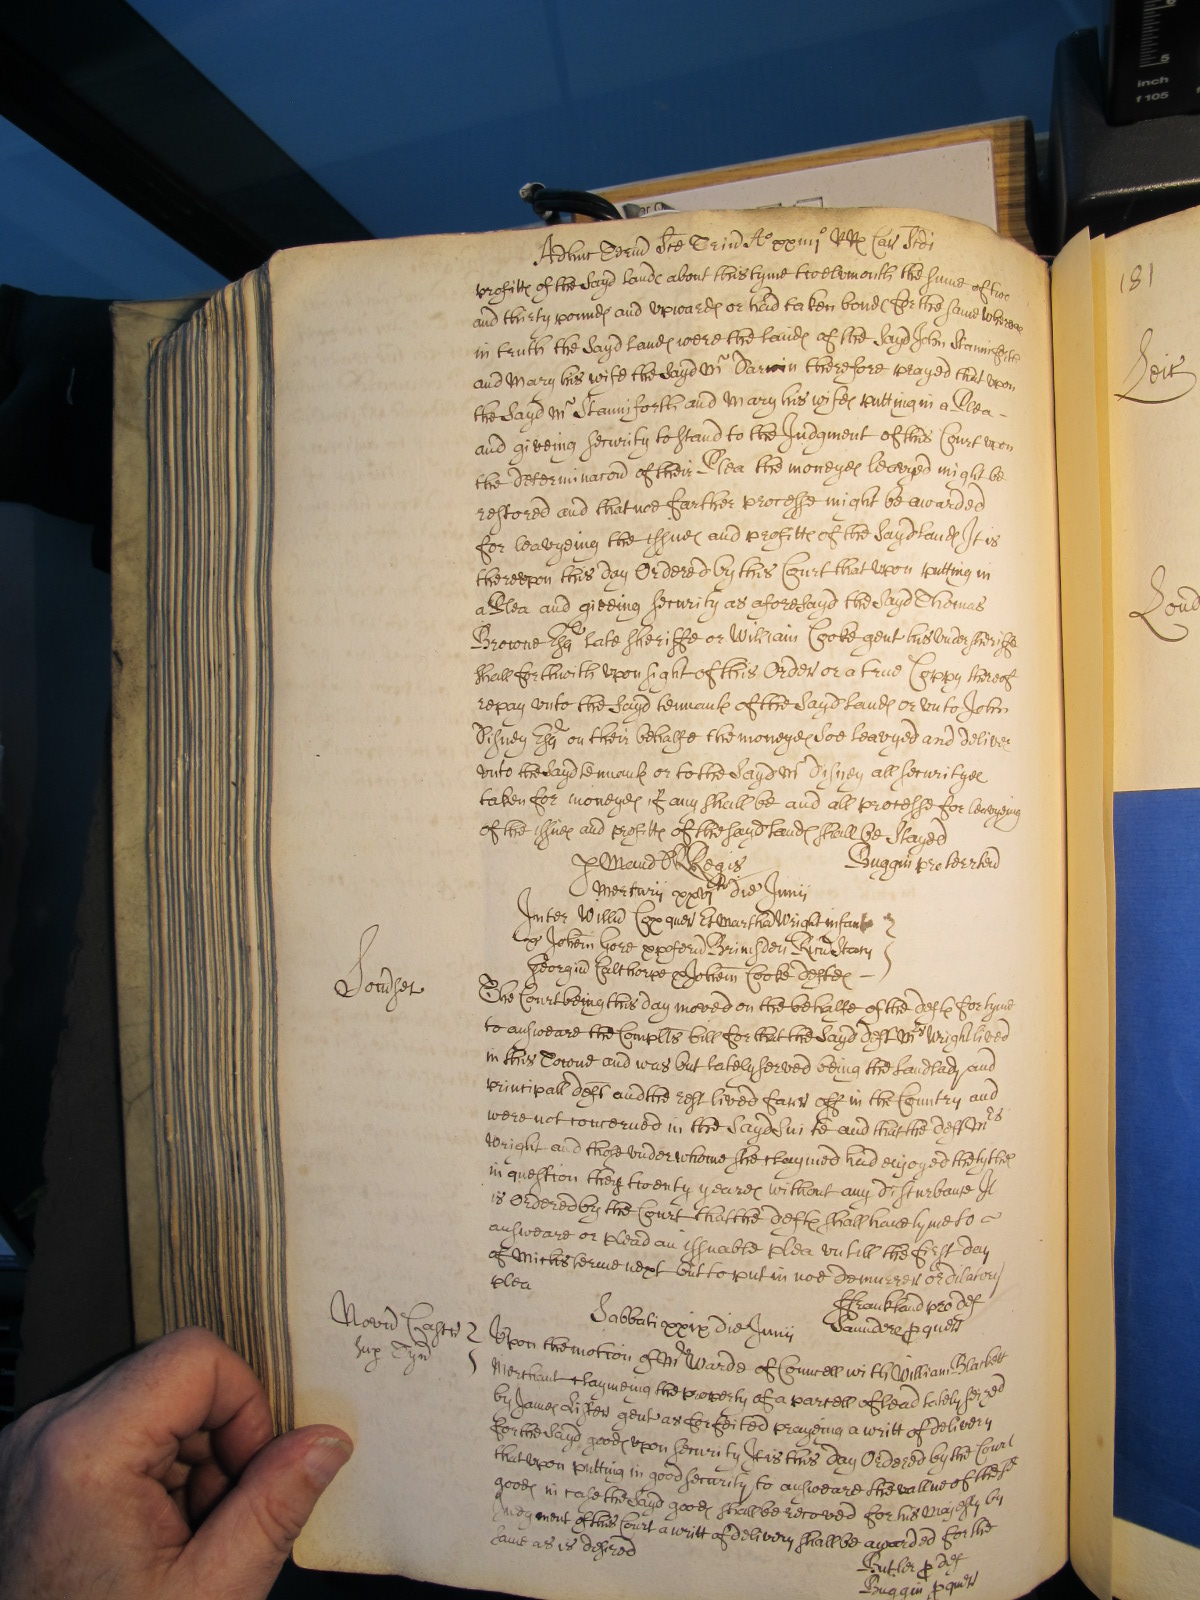 Adhuc Termino Ste Trin Ao xxiiijo RRs Car Scdi
profitts of the sayd lands about this tyme twelvmonth the sume of two
and thirty pounds and upwards or had taken bonds for the same whereas
in truth the sayd lands were the lands of the sayd John Stanniforth
and Mary his wife the sayd Mr Darwin therefore prayed that upon
the sayd Mr Stanniforth and Mary his wifes putting in a Plea -
and giveing security to stand to the Judgment of this Court upon
the determinacon of their Plea the moneyes leavyed might be
restored and that noe farther processe might be awarded
for leavyeing the issues and profitts of the sayd lands It is
thereupon this day Ordered by this Court that upon putting in
a Plea and giveing security as aforesayd the sayd Thomas
Browne Esqr late sheriffe or William Cooke gent his undersheriffe
shall forthwith upon sight of this Order or a true Coppy thereof
repay unto the sayd tennants of the sayd lands or unto John
Disney Esqr on their behalfe the moneyes soe leavyed and deliver
unto the sayd tennants or to the sayd Mr Disney all securityes
taken for moneyes if any shall be and all processe for leavyeing
of the issues and profitts of the sayd lands shall be stayed
p Mand Regis
Buggin pro terr tend
Mercurij xxvjto die Junij
Inter Willm Cox quer et Martha Wright infant
Johem hore xpoferu Brimsden
Georgiu Calthorpe Johem Cooke deftes -
Somset
The Court being this day moved on the behalfe of the defts for tyme
to answeare the Complts bill for that the sayd deft Mrs Wright lived
in this Towne and was but lately served being the landlady and
principall deft and the rest lived farr off in the Country and
were not concerned in the sayd suite and that the deft Mrs
Wright and those under whome she claymed had enjoyed the tythes
in question these twenty yeares without any disturbance It
is Ordered by the Court that the defts shall have tyme to
answeare or plead an issuable plea untill the first day
of Michs terme next but to put in noe demurrer or dilatory
plea
ffrankland pro def
Saunders p quer
Sabbati xxix die Junij
Novu Castru
sup Tyn
Upon the motion of Mr Warde of Councell with William Blackett
Merchant claymeing the property of a parcell of lead lately seized
by James Lister gent as forfeited prayeing a writt of delivery
for the sayd goods upon security It is this day Ordered by the Court
that upon putting in good security to answeare the vallue of these
goods in case the sayd goods shall be recoved for his Majesty by
Judgment of this Court a writt of delivery shall be awarded for the
same as is desired
Butler p def
Buggin p quer
181
inch
f 105